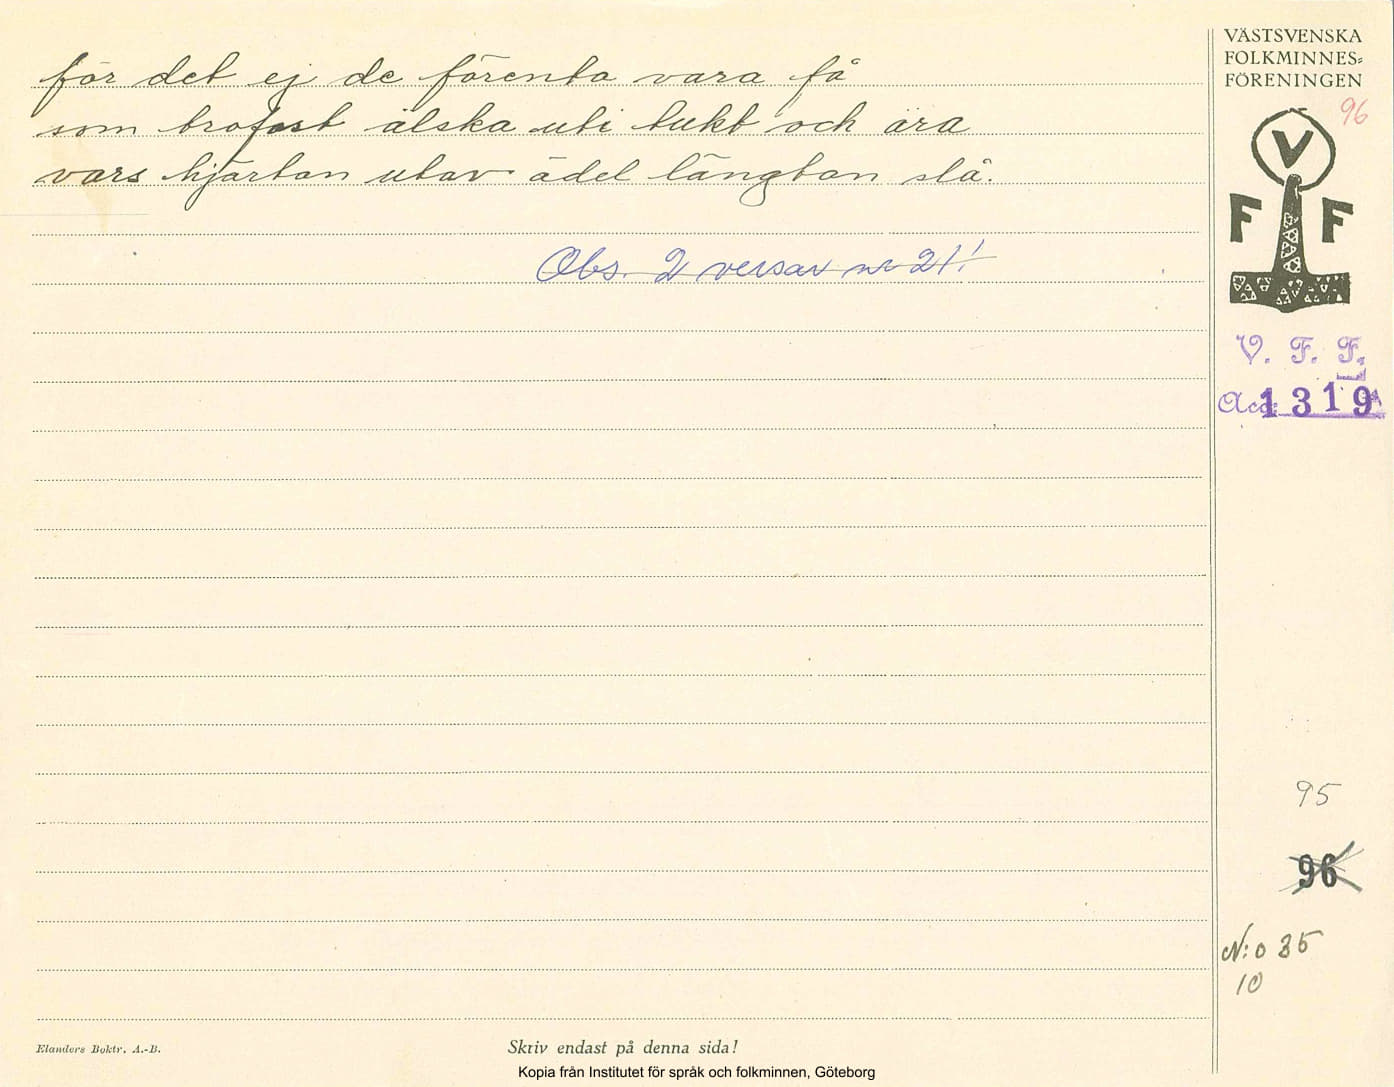 för det ej de förenta vara få
som trofast älska uti tukt och ära
vars hjärtan utav ädel längtan slå.
Obs. 2 versar nr 21!
VÄSTSVENSKA
FOLKMINNES=
FÖRENINGEN
96
V
F F
V. F. F.
Acc: 1319
95
96
N:o 35
10
Elanders Boktr. A.-B.
Skriv endast på denna sida!
Kopia från Institutet för språk och folkminnen, Göteborg